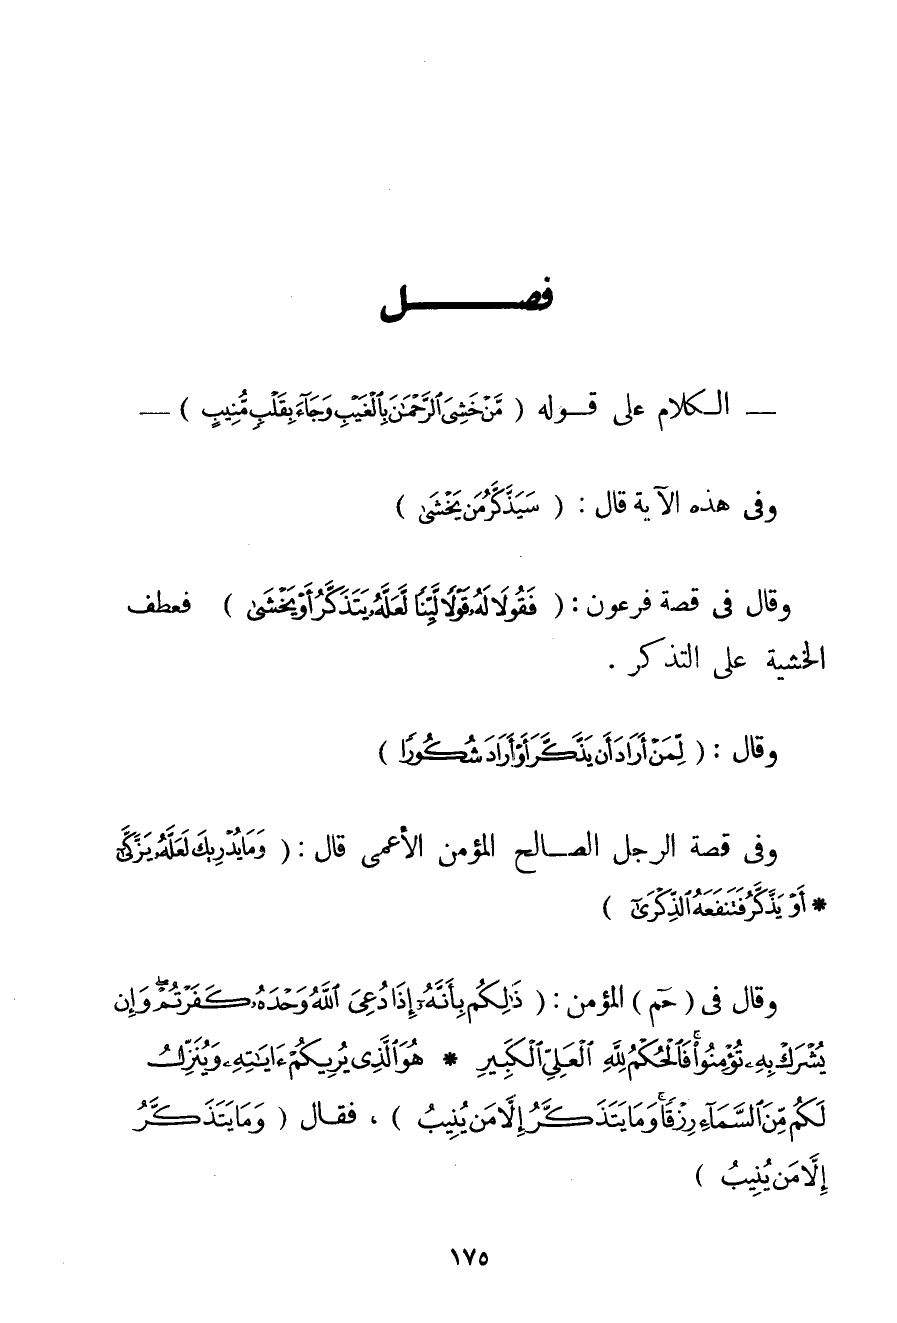 فصـــــــل
— الـكلام على قـوله ( مَّنْ خَشِىَ ٱلرَّحْمَٰنَ بِٱلْغَيْبِ وَجَآءَ بِقَلْبٍ مُّنِيبٍ ) —
وفى هذه الآية قال : ( سَيَذَّكَّرُ مَن يَخْشَىٰ )
وقال فى قصة فرعون : ( فَقُولَا لَهُۥ قَوْلًا لَّيِّنًا لَّعَلَّهُۥ يَتَذَكَّرُ أَوْ يَخْشَىٰ ) فعطف
الخشية على التذكر .
وقال : ( لِّمَنْ أَرَادَ أَن يَذَّكَّرَ أَوْ أَرَادَ شُكُورًا )
وفى قصة الرجل الصـالح المؤمن الأعمى قال : ( وَمَا يُدْرِيكَ لَعَلَّهُۥ يَزَّكَّىٰٓ
* أَوْ يَذَّكَّرُ فَتَنفَعَهُ ٱلذِّكْرَىٰٓ )
وقال فى ( حٓم ) المؤمن : ( ذَٰلِكُم بِأَنَّهُۥٓ إِذَا دُعِىَ ٱللَّهُ وَحْدَهُۥ كَفَرْتُمْ ۖ وَإِن
يُشْرَكْ بِهِۦ تُؤْمِنُوا۟ ۚ فَٱلْحُكْمُ لِلَّهِ ٱلْعَلِىِّ ٱلْكَبِيرِ * هُوَ ٱلَّذِى يُرِيكُمْ ءَايَٰتِهِۦ وَيُنَزِّلُ
لَكُم مِّنَ ٱلسَّمَآءِ رِزْقًا ۚ وَمَا يَتَذَكَّرُ إِلَّا مَن يُنِيبُ ) ، فقـال ( وَمَا يَتَذَكَّرُ
إِلَّا مَن يُنِيبُ )
١٧٥